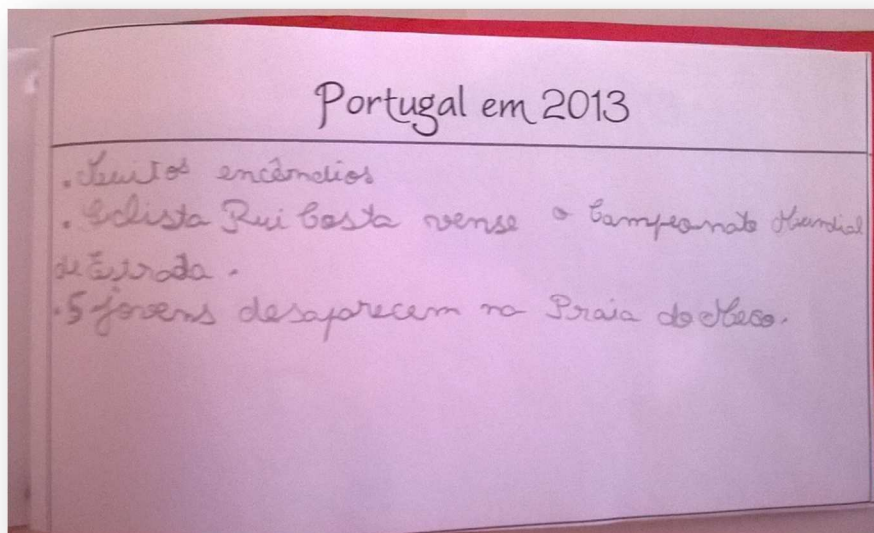 Portugal em 2013
. Muitos encêndios
. Ciclista Rui Costa vense o Campeonato Mundial
de Estrada.
. 5 jovens desaparecem na Praia do Meco.